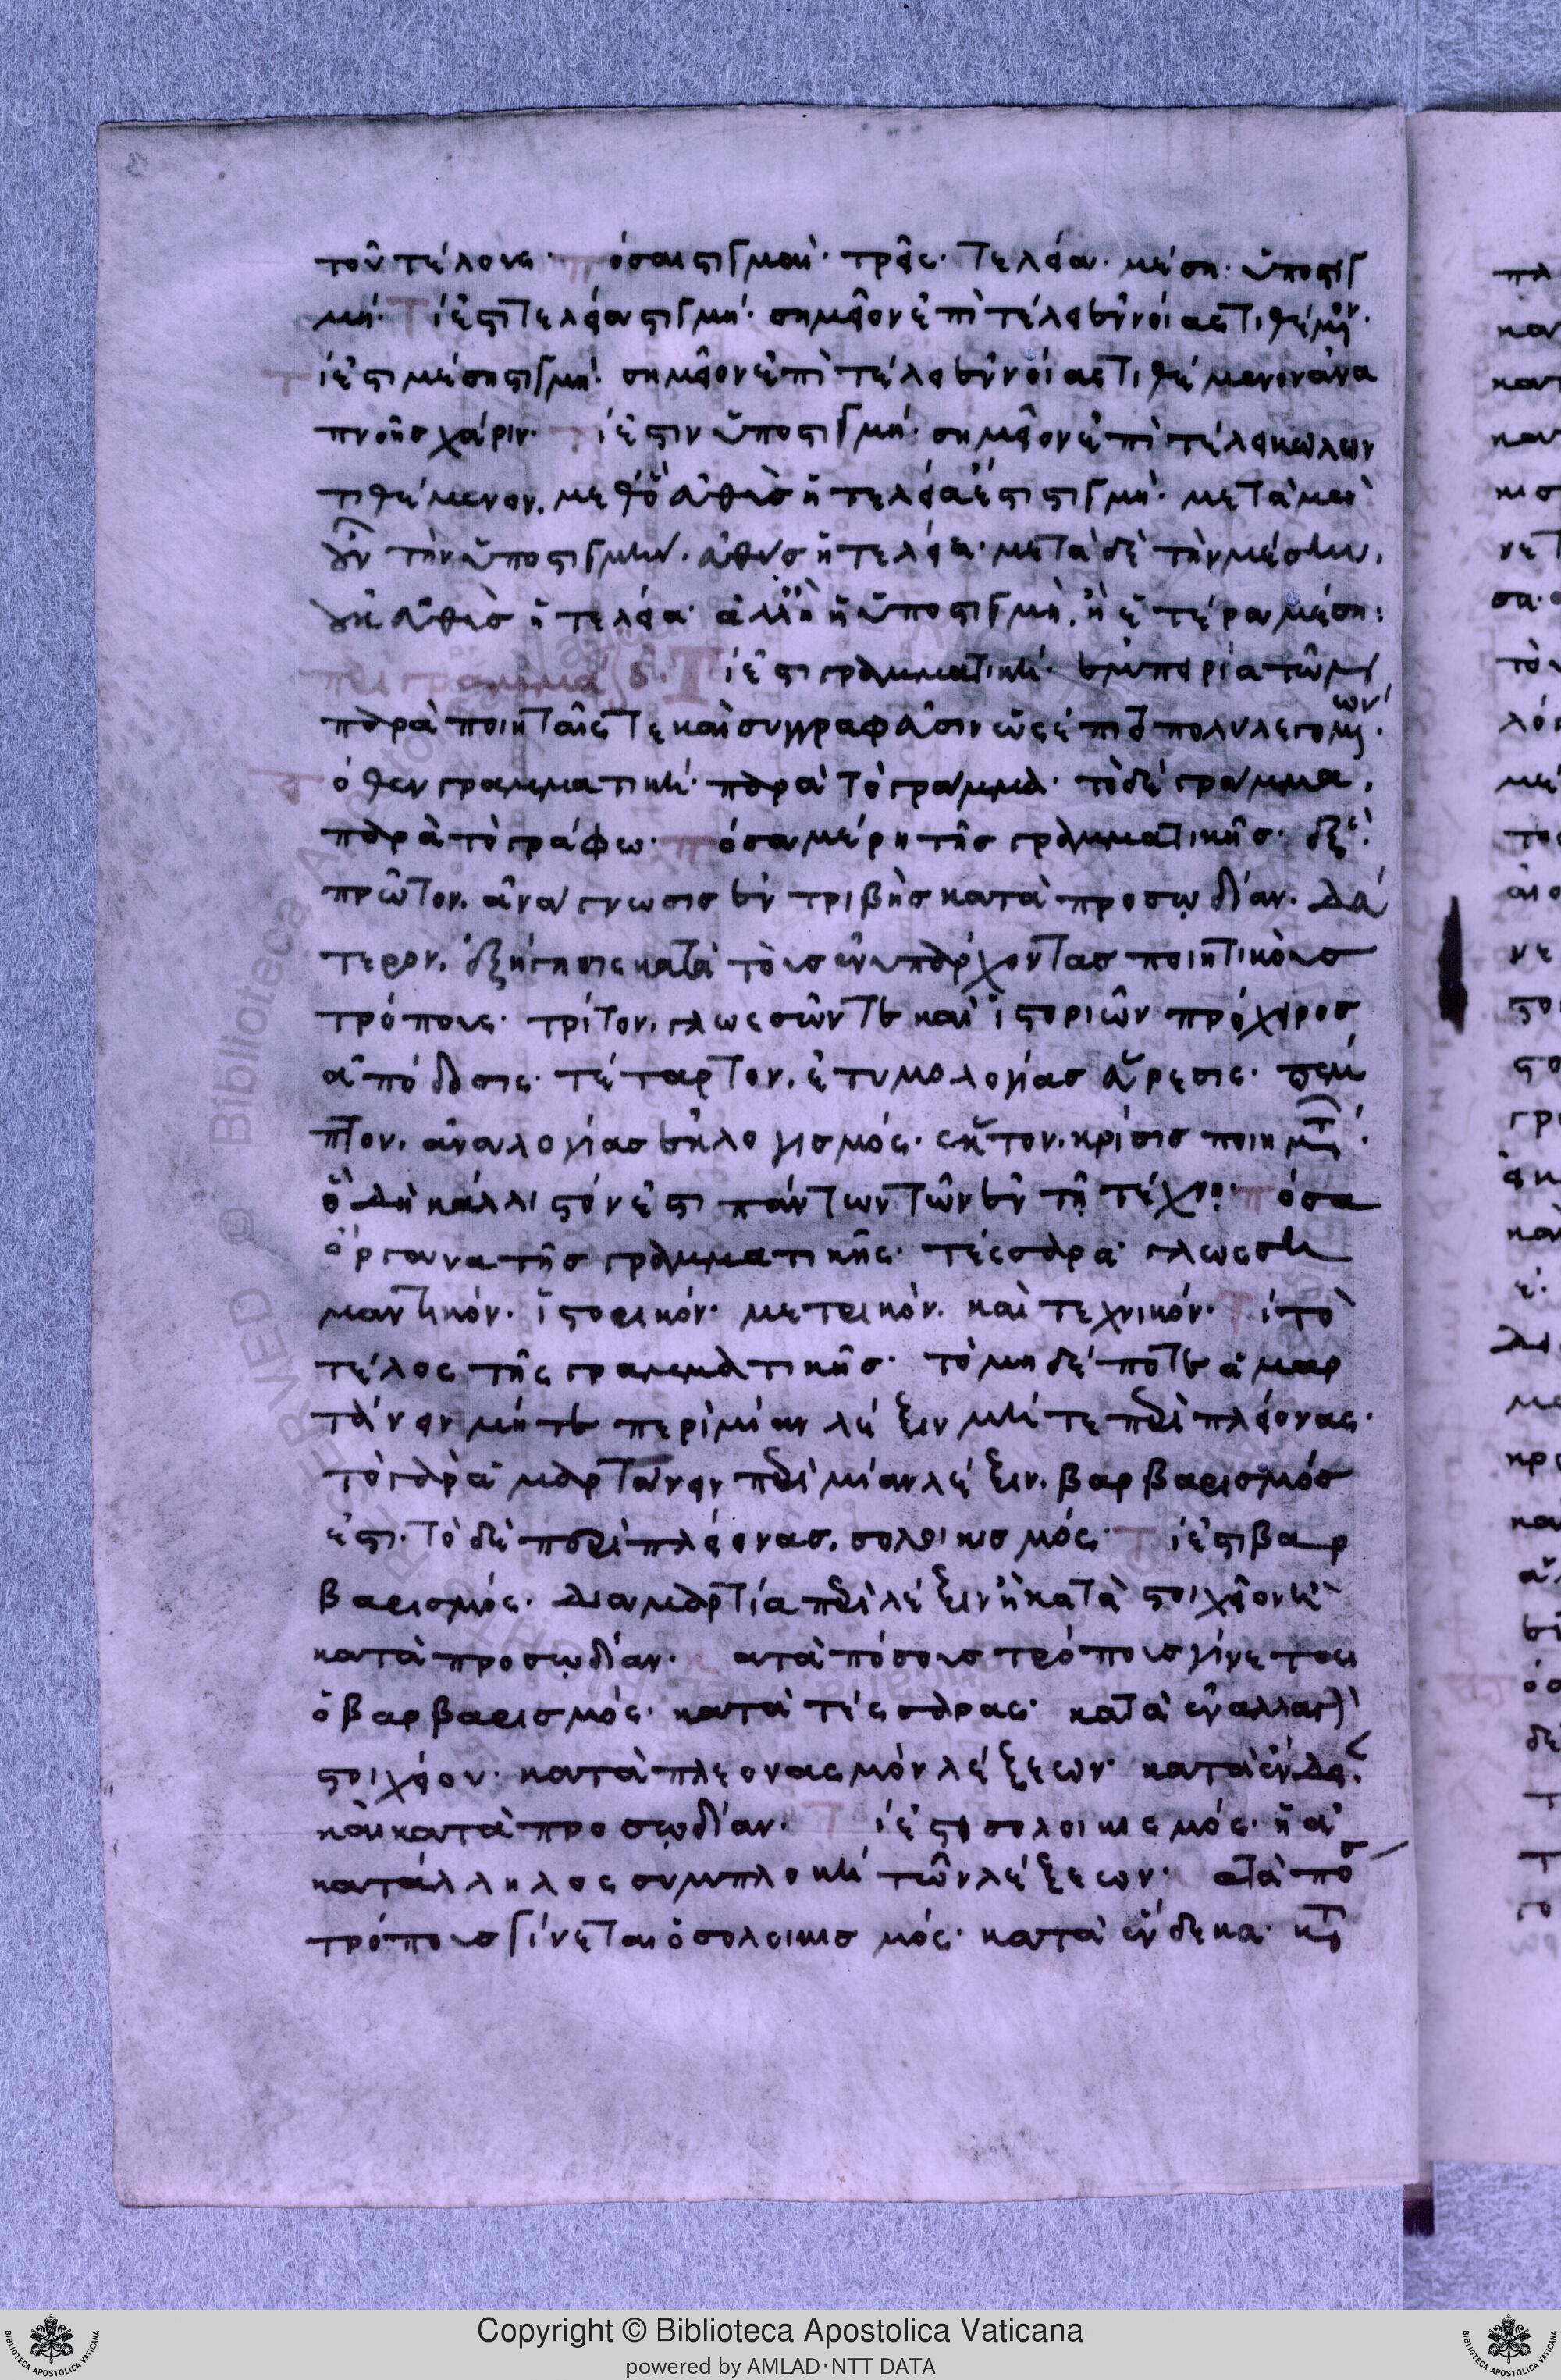 τοῦ τέλους· πόσαι στιγμαί· τρεῖς· τελεία· μέση· ὑποστιγ
μή· Τί ἐστι τελεία στιγμή· σημεῖον ἐπὶ τέλει ἐννοίας τιθέμενον·
τί ἐστι μέση στιγμή· σημεῖον ἐπὶ τέλει ἐννοίας τιθέμενον ἀνα
πνοῆς χάριν· τί ἐστιν ὑποστιγμή· σημεῖον ἐπὶ τέλει κώλων
τιθέμενον, μεθ' ὃ αὖθις ἡ τελεία ἐστι στιγμή· μετὰ μὲν
οὖν τὴν ὑποστιγμὴν, αὖθις ἡ τελεία· μετὰ δὲ τὴν μέσην,
οὐκ αὖθις ἡ τελεία· ἀλλ' ἢ ἡ ὑποστιγμὴ, ἢ ἑτέρα μέση:
περὶ γραμματικ Τί ἐστι γραμματική· ἐμπειρία τῶν
παρὰ ποιηταῖς τε καὶ συγγραφεῦσιν ὡς ἐπὶ τὸ πολὺ λεγομένων·
πόθεν γραμματική· παρὰ τὸ γράμμα· τὸ δὲ γράμμα,
παρὰ τὸ γράφω· πόσα μέρη τῆς γραμματικῆς· ἕξ·
πρῶτον, ἀνάγνωσις ἐντριβὴς κατὰ προσῳδίαν· δεύ
τερον, ἐξήγησις κατὰ τοὺς ἐνυπάρχοντας ποιητικοὺς
τρόπους· τρίτον, γλωσσῶν τε καὶ ἱστοριῶν πρόχειρος
ἀπόδοσις· τέταρτον, ἐτυμολογίας εὕρεσις· πέμ
πτον, ἀναλογίας ἐκλογισμός· ἕκτον, κρίσις ποιημάτων·
ὃ δὴ κάλλιστόν ἐστι πάντων τῶν ἐν τῇ τέχνῃ· πόσα
ὄργανα τῆς γραμματικῆς· τέσσαρα· γλωσση
ματικόν· ἱστορικόν· μετρικόν, καὶ τεχνικόν· τί τὸ
τέλος τῆς γραμματικῆς· τὸ μηδέποτε ἁμαρ
τάνειν μήτε περὶ μίαν λέξιν μήτε περὶ πλείονας·
τὸ γὰρ ἁμαρτάνειν περὶ μίαν λέξιν, βαρβαρισμός
ἐστι· τὸ δὲ περὶ πλείονας, σολοικισμός· τί ἐστι βαρ
βαρισμός· διαμαρτία περὶ λέξιν ἢ κατὰ στοιχεῖον ἢ
κατὰ προσῳδίαν· κατὰ πόσους τρόπους γίνεται
ὁ βαρβαρισμός· κατὰ τέσσαρας· κατὰ ἐναλλαγὴν
στοιχείου· κατὰ πλεονασμὸν λέξεων· κατὰ ἔνδειαν
καὶ κατὰ προσῳδίαν· τί ἐστι σολοικισμός· ἡ ἀ
κατάλληλος συμπλοκὴ τῶν λέξεων· κατὰ πόσους
τρόπους γίνεται ὁ σολοικισμός· κατὰ ἕνδεκα· κατὰ
Copyright © Biblioteca Apostolica Vaticana
powered by AMLAD·NTT DATA